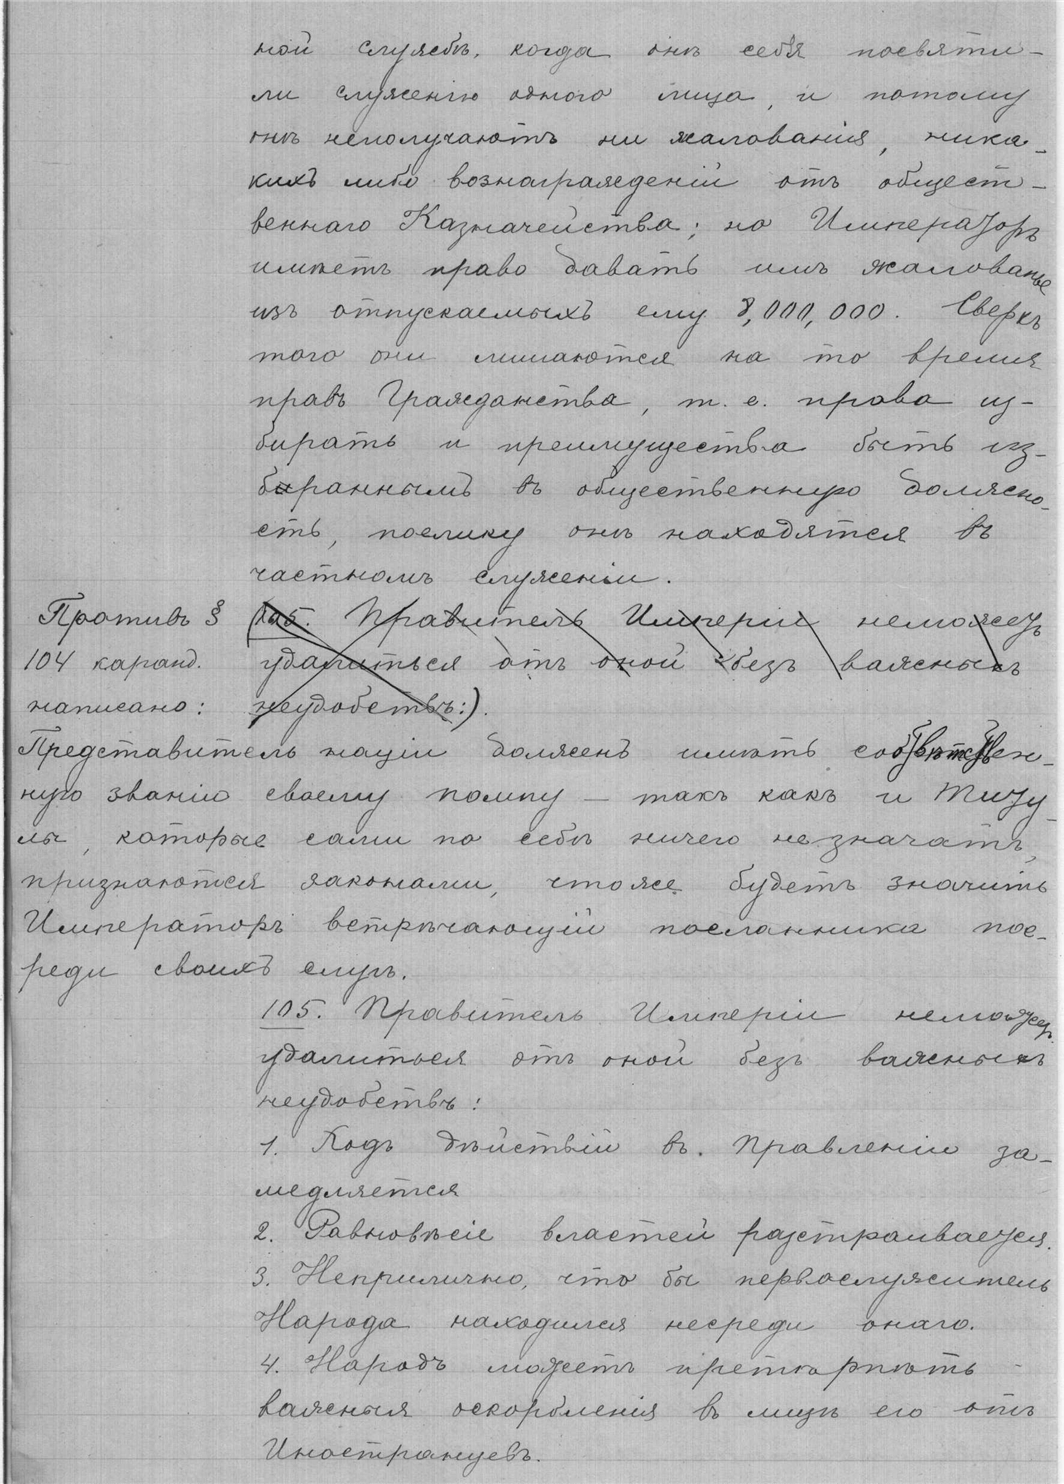 ной службѣ, когда онѣ себя посвяти-
ли служенію одного лица, и потому
онѣ неполучаютъ ни жалованія, ника-
кихъ либо вознагражденій отъ общест-
веннаго Казначейства; но Императоръ
имѣетъ право давать имъ жалованье
изъ отпускаемыхъ ему 8,000,000. Сверхъ
того они лишаются на то время
правъ Гражданства, т. е. права из-
бирать и преимущества быть из-
браннымъ въ общественную должно-
сть, поелику онѣ находятся въ
частномъ служеніи.
Противъ §
104 каранд.
написано:
(105. Правитель Имперіи неможетъ
удалиться отъ оной безъ важныхъ
неудобствъ:).
Представитель націи долженъ имѣть соотвѣтствен-
ную званію своему помпу — такъ какъ и титу-
лы, которые сами по себѣ ничего не значатъ,
признаются законами, чтоже будетъ значить
Императоръ встрѣчающій посланника пос-
реди своихъ слугъ.
105. Правитель Имперіи неможетъ
удалиться отъ оной безъ важныхъ
неудобствъ:
1. Ходъ дѣйствій въ. Правленіи за-
медляется
2. Равновѣсіе властей разстраивается.
3. Неприлично, что бы первослужитель
Народа находился несреди онаго.
4. Народъ можетъ претерпѣть
важныя оскорбленія въ лицѣ его отъ
Иностранцевъ.